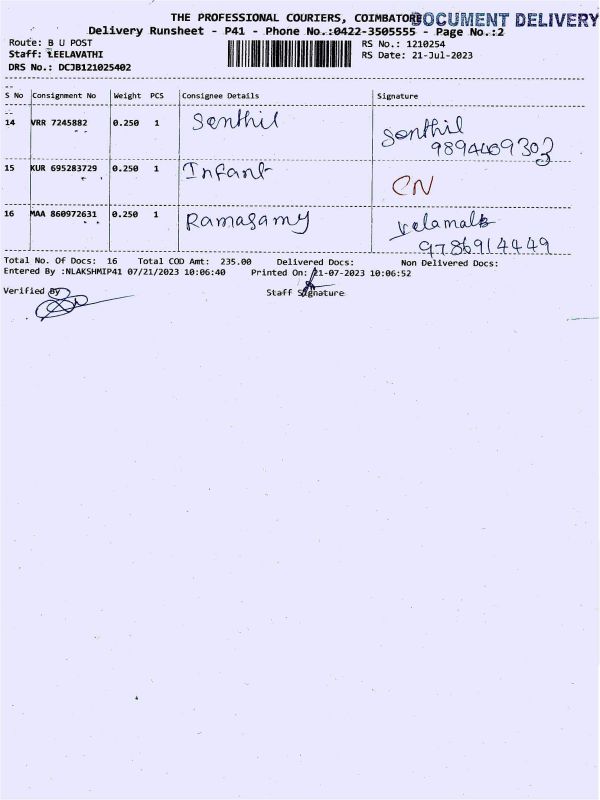 THE PROFESSIONAL COURIERS, COIMBATORE DOCUMENT DELIVERY
Delivery Runsheet - P41 - Phone No.:0422-3505555 - Page No.:2
Route: B U POST RS No.: 1210254
Staff: LEELAVATHI RS Date: 21-Jul-2023
DRS No.: DCJB121025402
S No Consignment No Weight PCS Consignee Details Signature
14 VRR 7245882 0.250 1 Senthil Senthil
9894409303
15 KUR 695283729 0.250 1 Infant CN
16 MAA 860972631 0.250 1 Ramasamy
9786914449
Total No. Of Docs: 16 Total COD Amt: 235.00 Delivered Docs: Non Delivered Docs:
Entered By :NLAKSHMIP41 07/21/2023 10:06:40 Printed On: 21-07-2023 10:06:52
Verified By Staff Signature